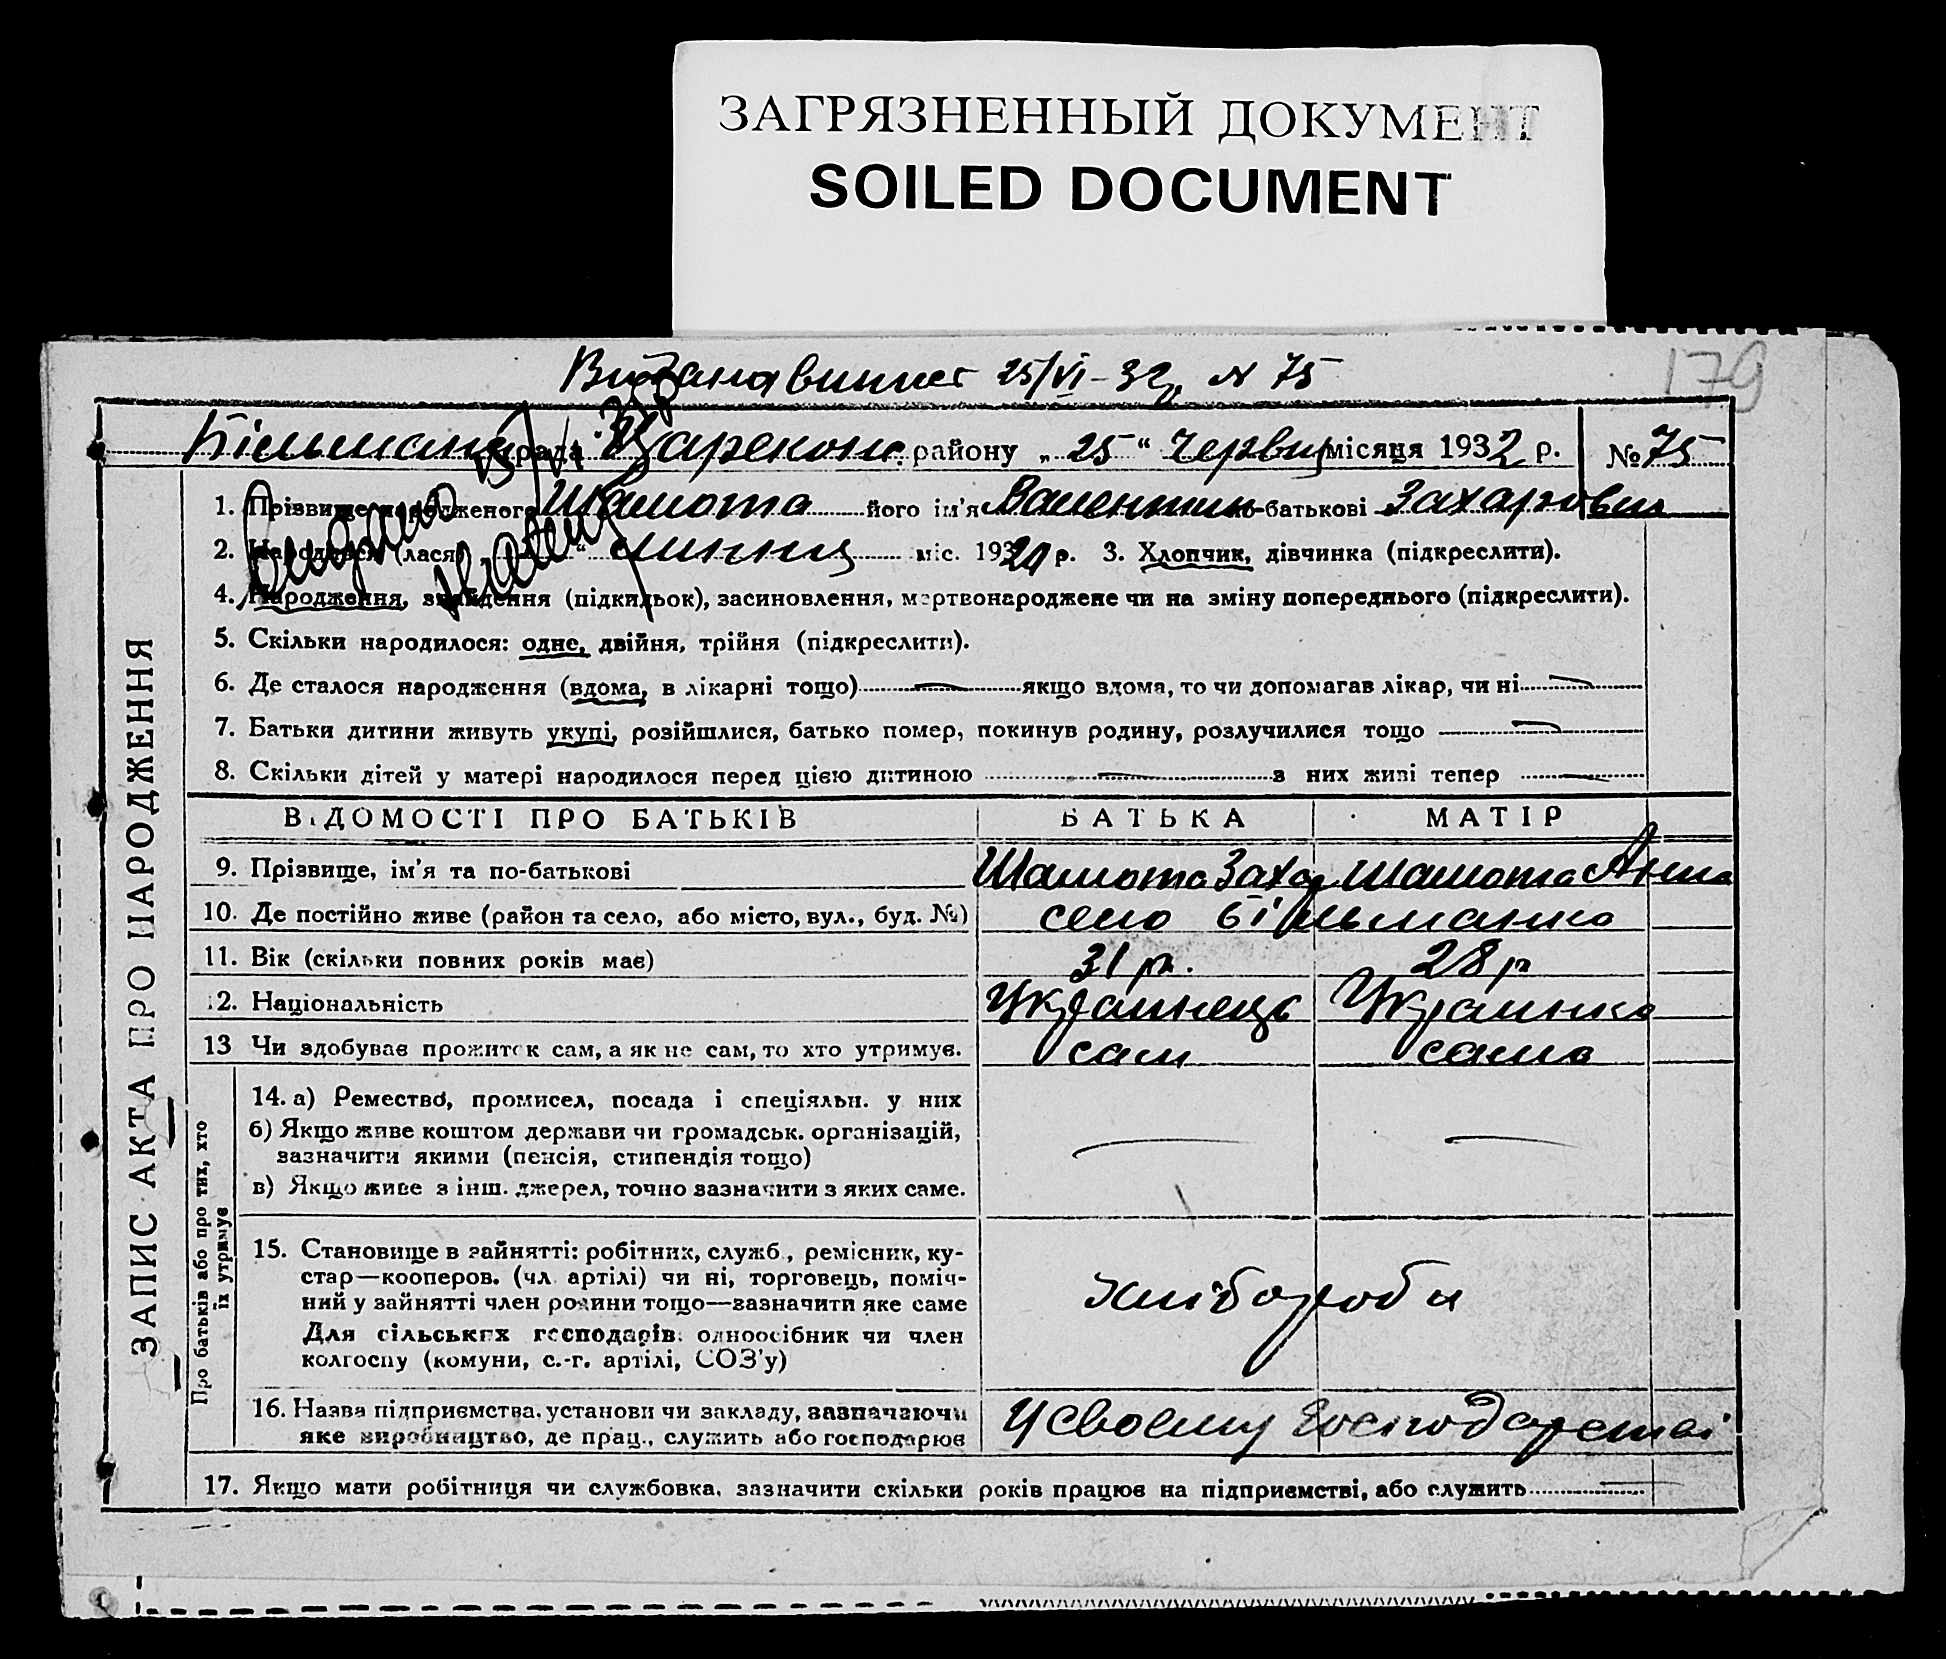 ЗАГРЯЗНЕННЫЙ ДОКУМЕНТ
SOILED DOCUMENT
Видана виписг 25/VI-32р. N 75
179
Більманс рада Царекон. району „25“ Червця місяця 1932 р. №75
1. Прізвище народженого Шамота його ім'я Валентин по-батькові Захарович
2. Народився (лася) “ липня міс. 1924 р. 3. Хлопчик, дівчинка (підкреслити).
4. Народження, знайдення (підкидьок), засиновлення, мертвонароджене чи на зміну попереднього (підкреслити).
5. Скільки народилося: одне, двійня, трійня (підкреслити).
6. Де сталося народження (вдома, в лікарні тощо) — якщо вдома, то чи допомагав лікар, чи ні —
7. Батьки дитини живуть укупі, розійшлися, батько помер, покинув родину, розлучилися тощо —
8. Скільки дітей у матері народилося перед цією дитиною — з них живі тепер —
ЗАПИС АКТА ПРО НАРОДЖЕННЯ
ВІДОМОСТІ ПРО БАТЬКІВ БАТЬКА МАТІР
9. Прізвище, ім'я та по-батькові Шамота Захар Шамота Анна
10. Де постійно живе (район та село, або місто, вул., буд. №) село Більманка
11. Вік (скільки повних років має) 31 р. 28 р
12. Національність Українець Українка
13 Чи здобував прожиток сам, а як не сам, то хто утримує. сам сама
Про батьків або про тих, хто
їх утримує
14. а) Ремество, промисел, посада і спеціяльн. у них
б) Якщо живе коштом держави чи громадськ. організацій,
зазначити якими (пенсія, стипендія тощо) — —
в) Якщо живе з інш. джерел, точно зазначити з яких саме.
15. Становище в зайнятті: робітник, служб., ремісник, ку-
стар—кооперов. (чл. артілі) чи ні, торговець, поміч-
ний у зайнятті член родини тощо—зазначити яке саме хлібороби
Для сільських господарів: одноосібник чи член
колгоспу (комуни, с.-г. артілі, СОЗ'у)
16. Назва підприємства, установи чи закладу, зазначаючи
яке виробництво, де прац., служить або господарює У своєму господарстві
17. Якщо мати робітниця чи службовка, зазначити скільки років працює на підприємстві, або служить —